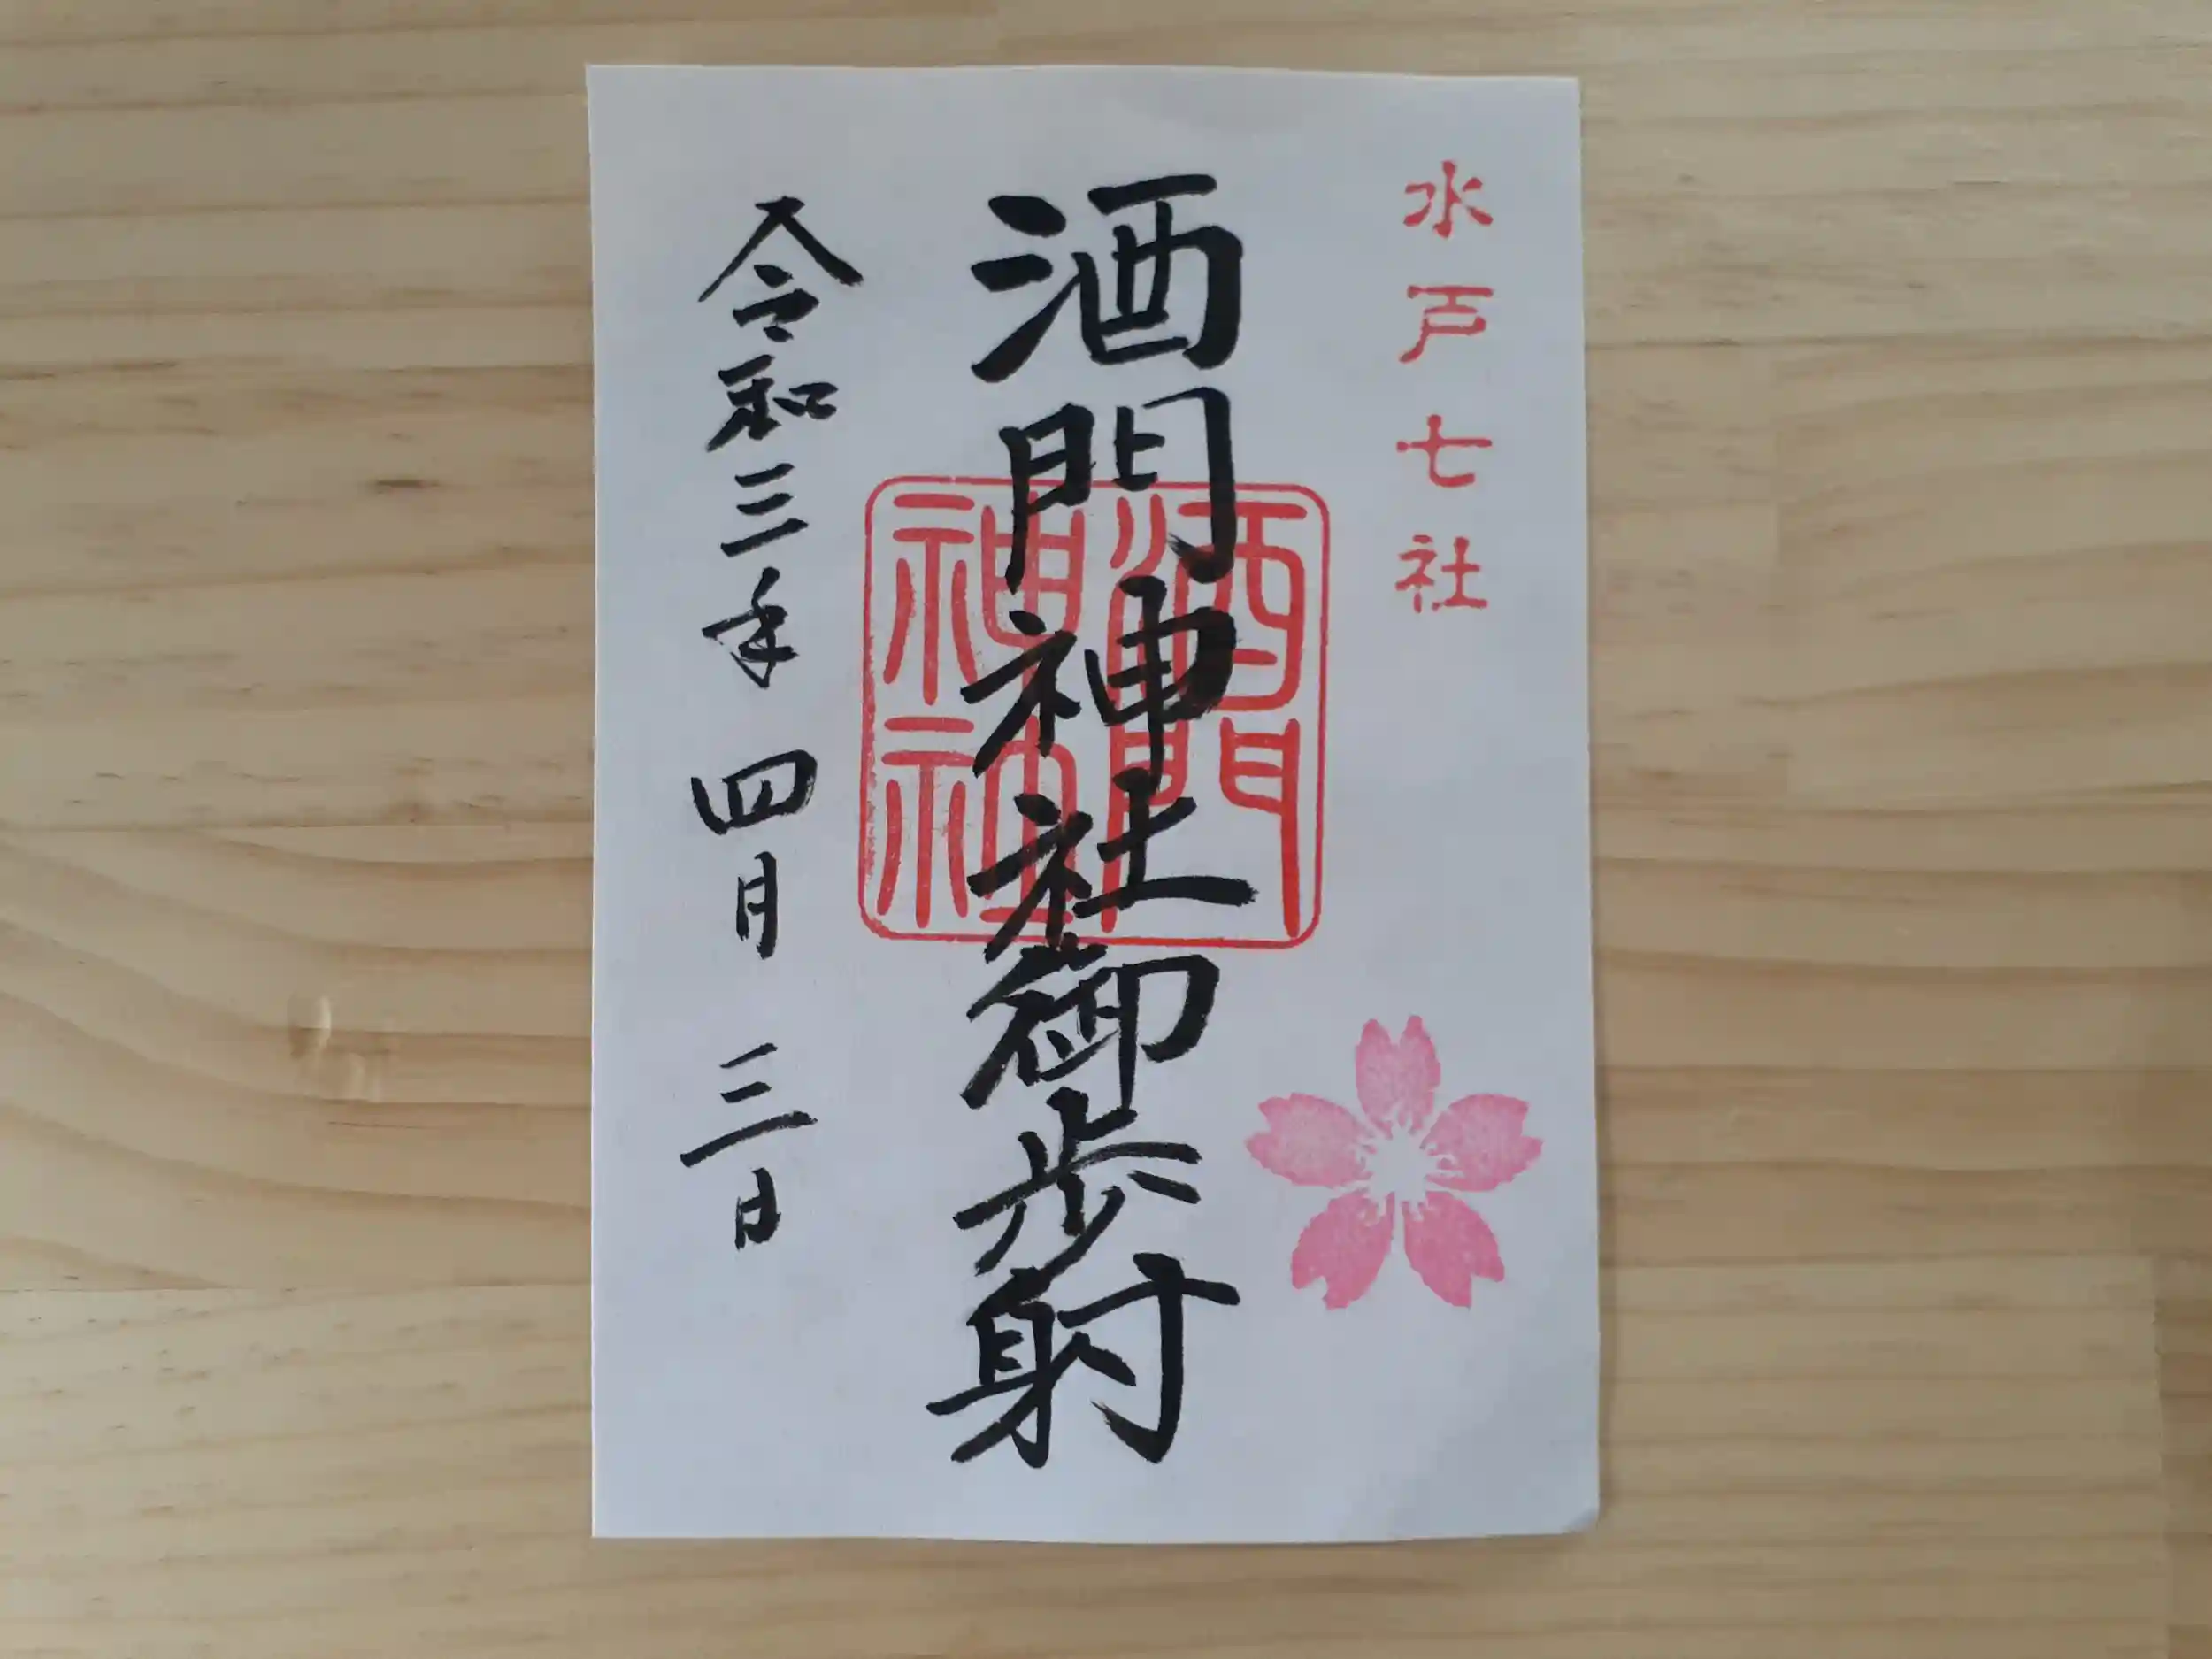 水戸七社
酒門神社御歩射
酒門神社
令和三年四月三日